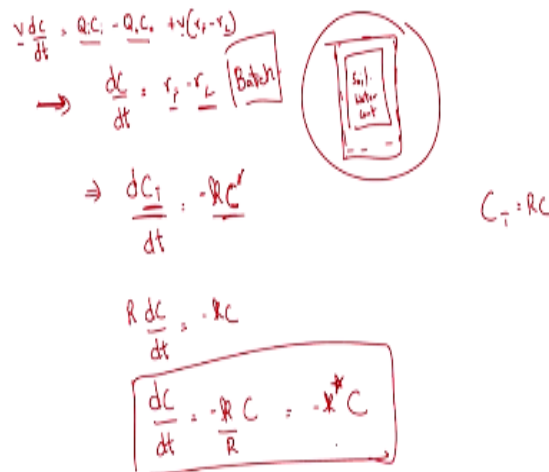 V dC/dt = QᵢCᵢ - QₒCₒ + V(r_f - r_L)
→ dC/dt = r_f - r_L Batch
Soil
Water
Cont
⇒ dC_T/dt = -kC
C_T = RC
R dC/dt = -kC
dC/dt = -k/R C = -k* C